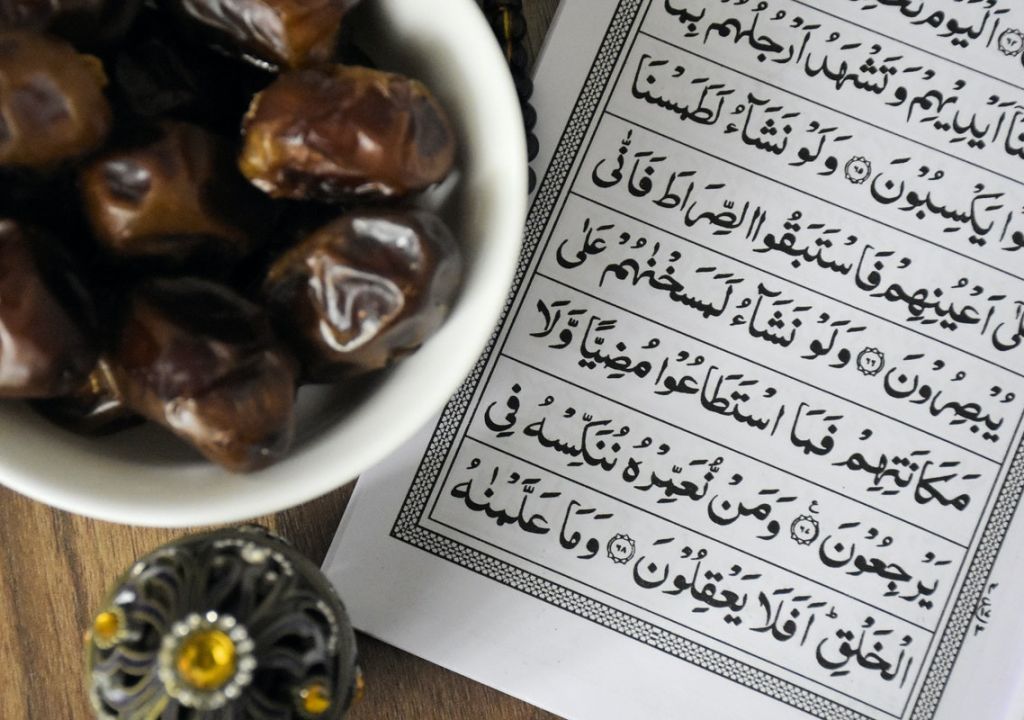 اَلْيَوْمَ
اَيْدِيْهِمْ وَ تَشْهَدُ اَرْجُلُهُمْ بِمَا
يَكْسِبُوْنَ ٦٥ وَلَوْ نَشَآءُ لَطَمَسْنَا
اَعْيُنِهِمْ فَاسْتَبَقُوا الصِّرَاطَ فَاَنّٰى
يُبْصِرُوْنَ ٦٦ وَلَوْ نَشَآءُ لَمَسَخْنٰهُمْ عَلٰى
مَكَانَتِهِمْ فَمَا اسْتَطَاعُوْا مُضِيًّا وَّلَا
يَرْجِعُوْنَ ٦٧ۧ وَمَنْ نُّعَمِّرْهُ نُنَكِّسْهُ فِى
الْخَلْقِ ؕ اَفَلَا يَعْقِلُوْنَ ٦٨ وَمَا عَلَّمْنٰهُ